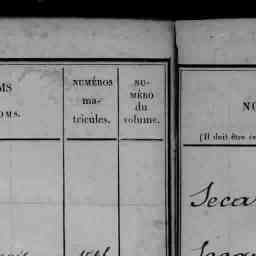 MS
OMS.
NUMÉROS
ma-
tricules.
NU-
MÉRO
du
volume.
NO
(Il doit être
Seca